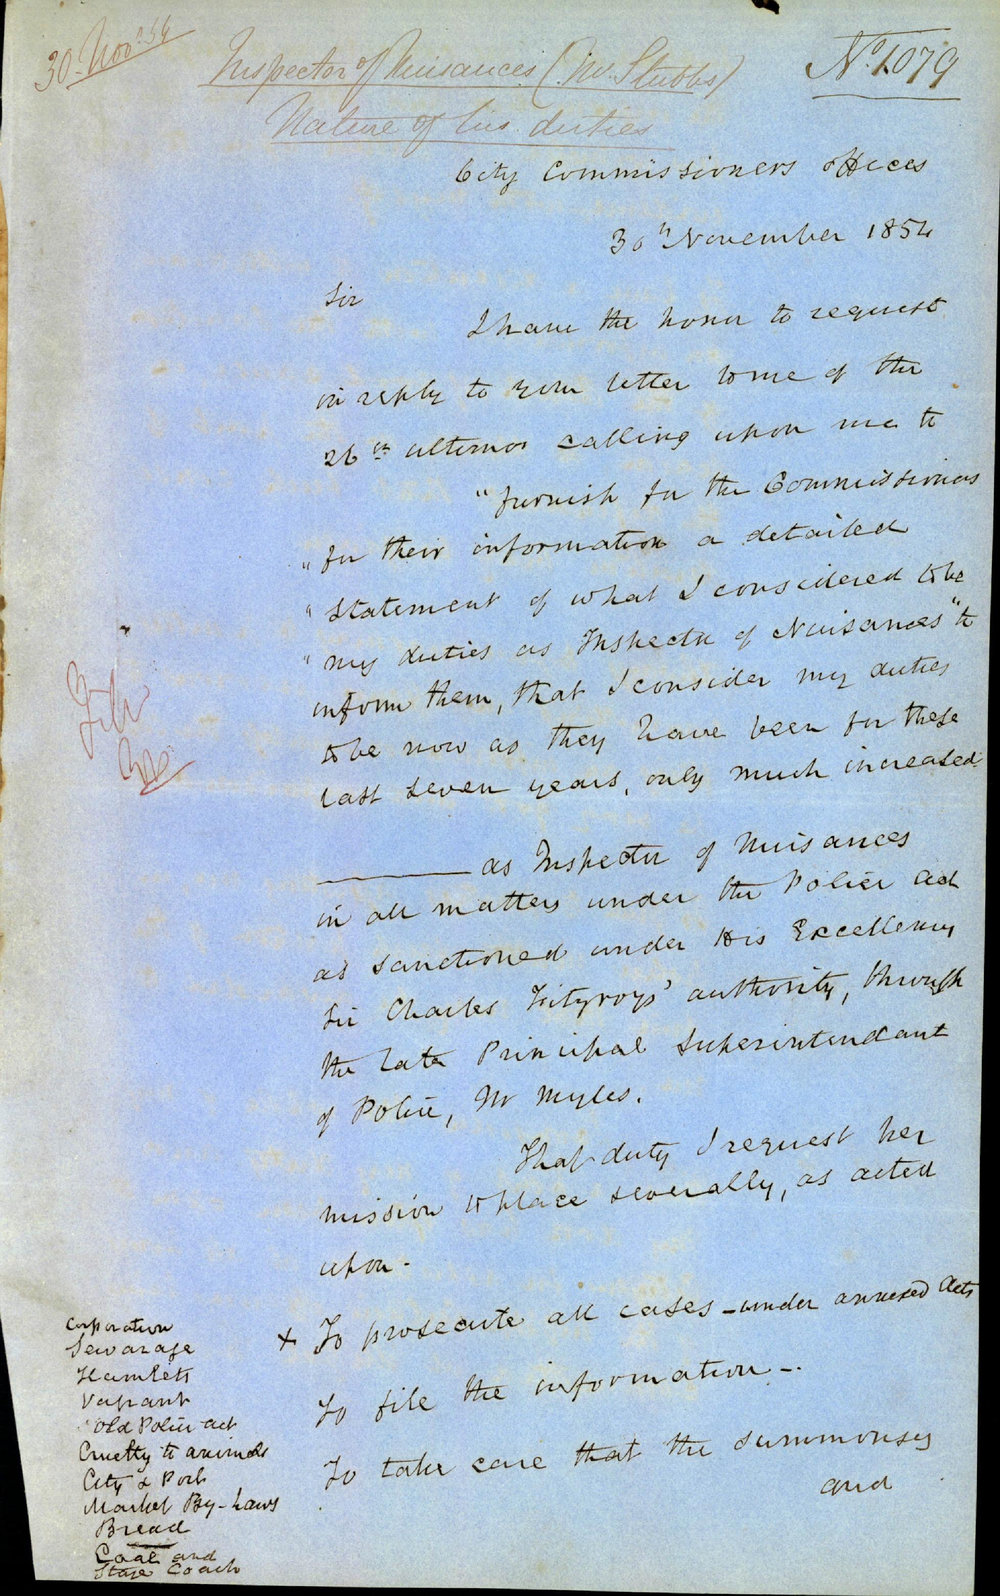 30. Nov. 54
Inspector of Nuisances (Mr. Stubbs)
Nature of his duties
No. 1079
City Commissioners offices
30th November 1854
Sir
I have the honor to request
in reply to your letter to me of the
26th ultimo calling upon me to
"furnish for the Commissioners
"for their information a detailed
"statement of what I considered to be
"my duties as Inspector of Nuisances" to
inform them, that I consider my duties
to be now as they have been for these
last seven years, only much increased.
as Inspector of Nuisances
in all matters under the Police act
as sanctioned under His Excellency
Sir Charles Fitzroys' authority, through
the late Principal Superintendant
of Police, Mr Myles.
That duty I request per
mission to place severally, as acted
upon.
x To prosecute all cases - under annexed Acts
To file the information -.
To take care that the summonses
and
File
Corporation
Sewarage
Hamletts
Vagrant
Old Police act
Cruelty to animals
City & Port
Market By-Laws
Bread
Coal and
Stage Coach